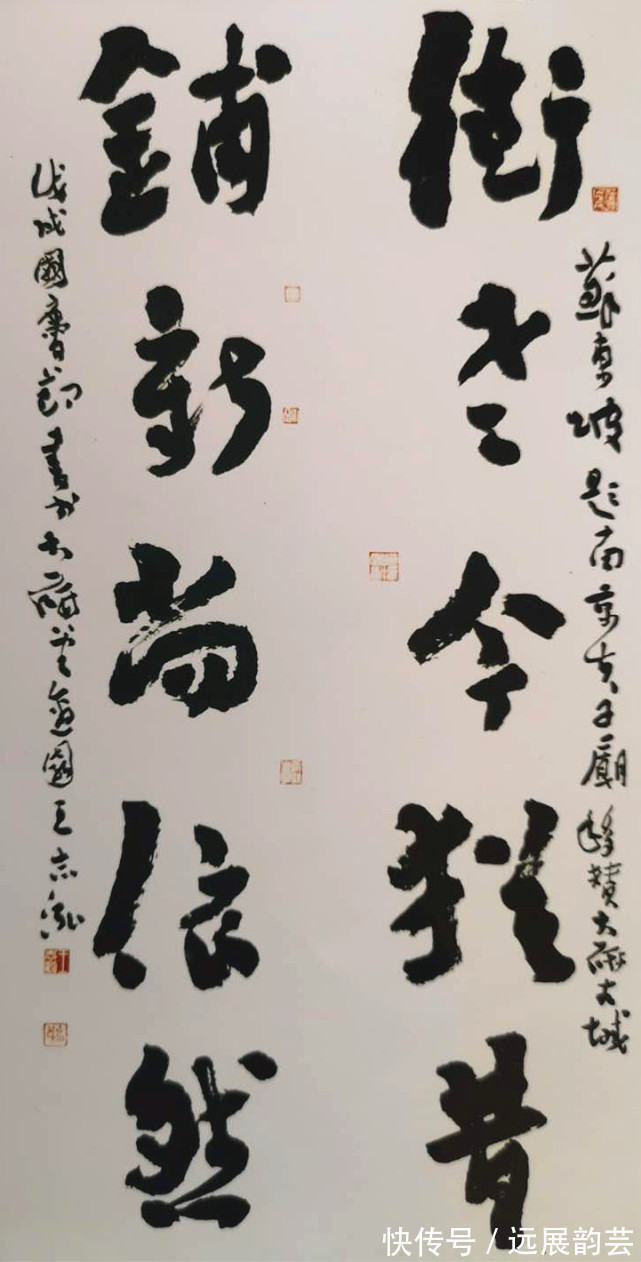 蘇東坡題南京夫子廟 移贊大研古城
街老今猶昔
鋪新尚依然
戊戌國慶節書於大研 王志泓
快传号/远展韵芸